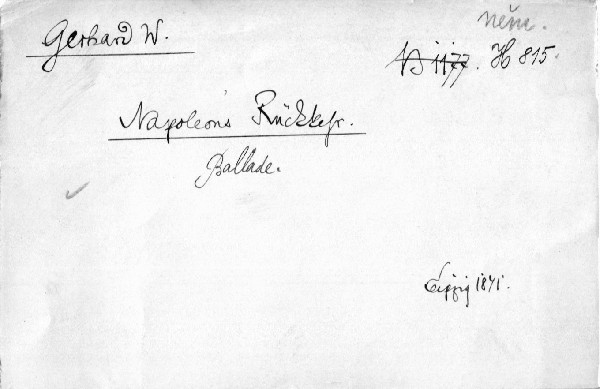 něm.
Gerhard W.
N 1177. H 815.
Napoleons Rückkehr.
Ballade.
Leipzig 1841.